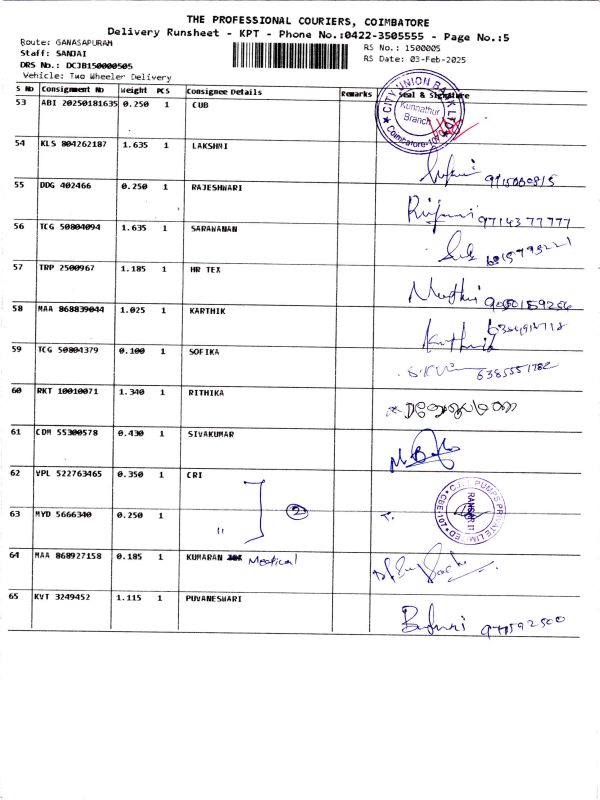 THE PROFESSIONAL COURIERS, COIMBATORE
Delivery Runsheet - KPT - Phone No.:0422-3505555 - Page No.:5
Route: GANASAPURAM
Staff: SANJAI
DRS No.: DCJB150000505
Vehicle: Two Wheeler Delivery
RS No.: 1500005
RS Date: 03-Feb-2025
S No Consignment No Weight PCS Consignee Details Remarks Seal & Signature
53 ABI 20250181635 0.250 1 CUB
CITY UNION BANK LTD
Kunnathur
Branch
Coimbatore-107
54 KLS 804262187 1.635 1 LAKSHMI
55 DDG 402466 0.250 1 RAJESHWARI
9714377777
56 TCG 50804094 1.635 1 SARAWANAN
57 TRP 2500967 1.185 1 HR TEX
Muthu
58 MAA 868839044 1.025 1 KARTHIK
Karthik
59 TCG 50804379 0.100 1 SOFIKA
6385551782
60 RKT 10010071 1.340 1 RITHIKA
61 CDM 55300578 0.430 1 SIVAKUMAR
62 VPL 522763465 0.350 1 CRI
C.R.I. PUMPS PRIVATE LIMITED
CBE-107
63 MYD 5666340 0.250 1 "
2
64 MAA 868927158 0.185 1 KUMARAN Medical
65 KVT 3249452 1.115 1 PUVANESWARI